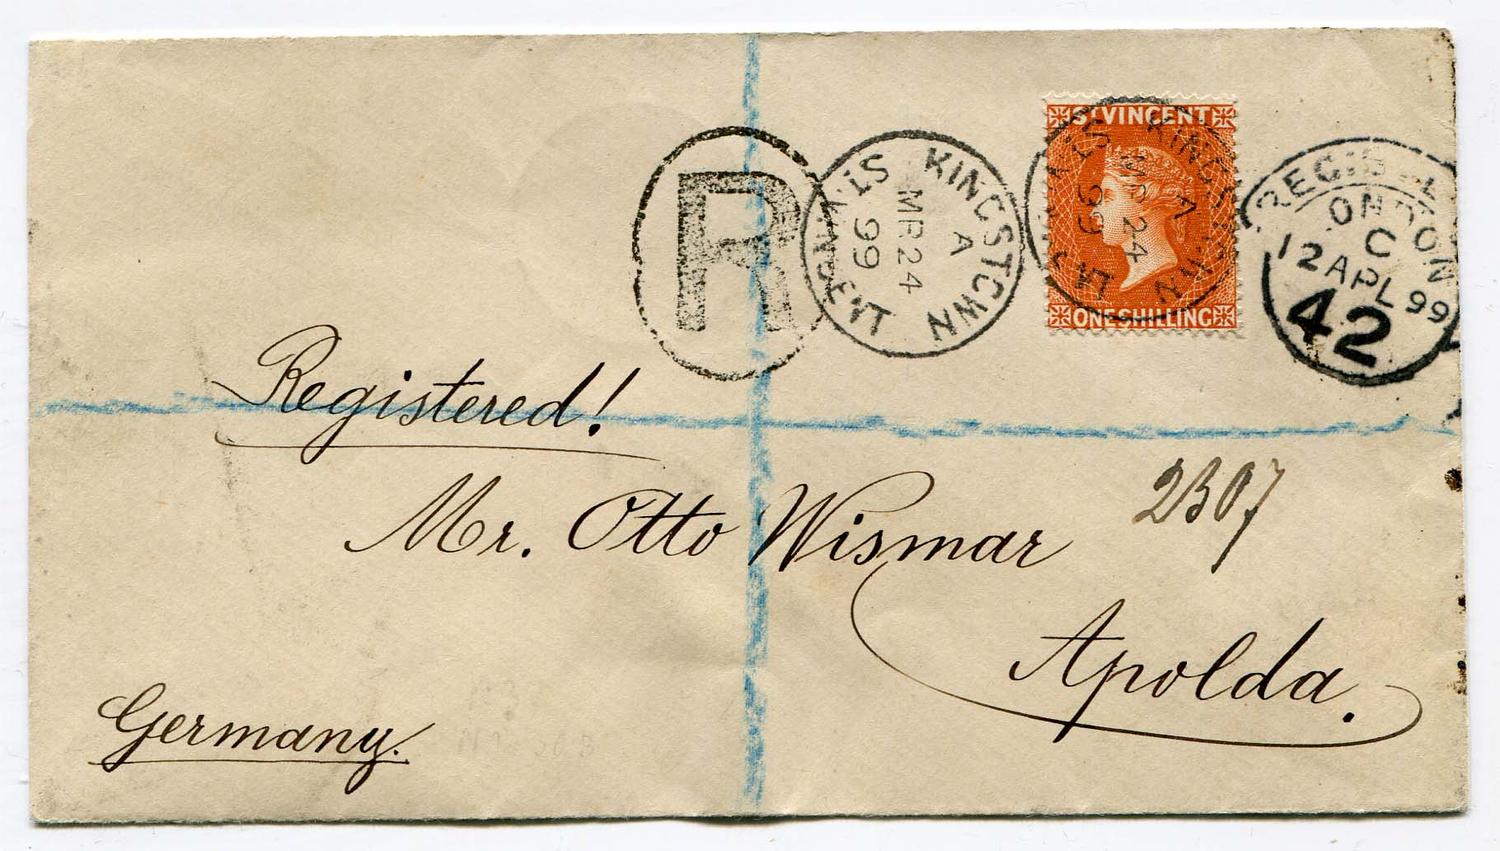 R
KINGSTOWN
A
MR 24
99
ST VINCENT
KINGSTOWN
A
MR 24
99
ONE SHILLING
LONDON
C
12 APL 99
42
Registered!
Mr. Otto Wismar
2307
Apolda.
Germany.